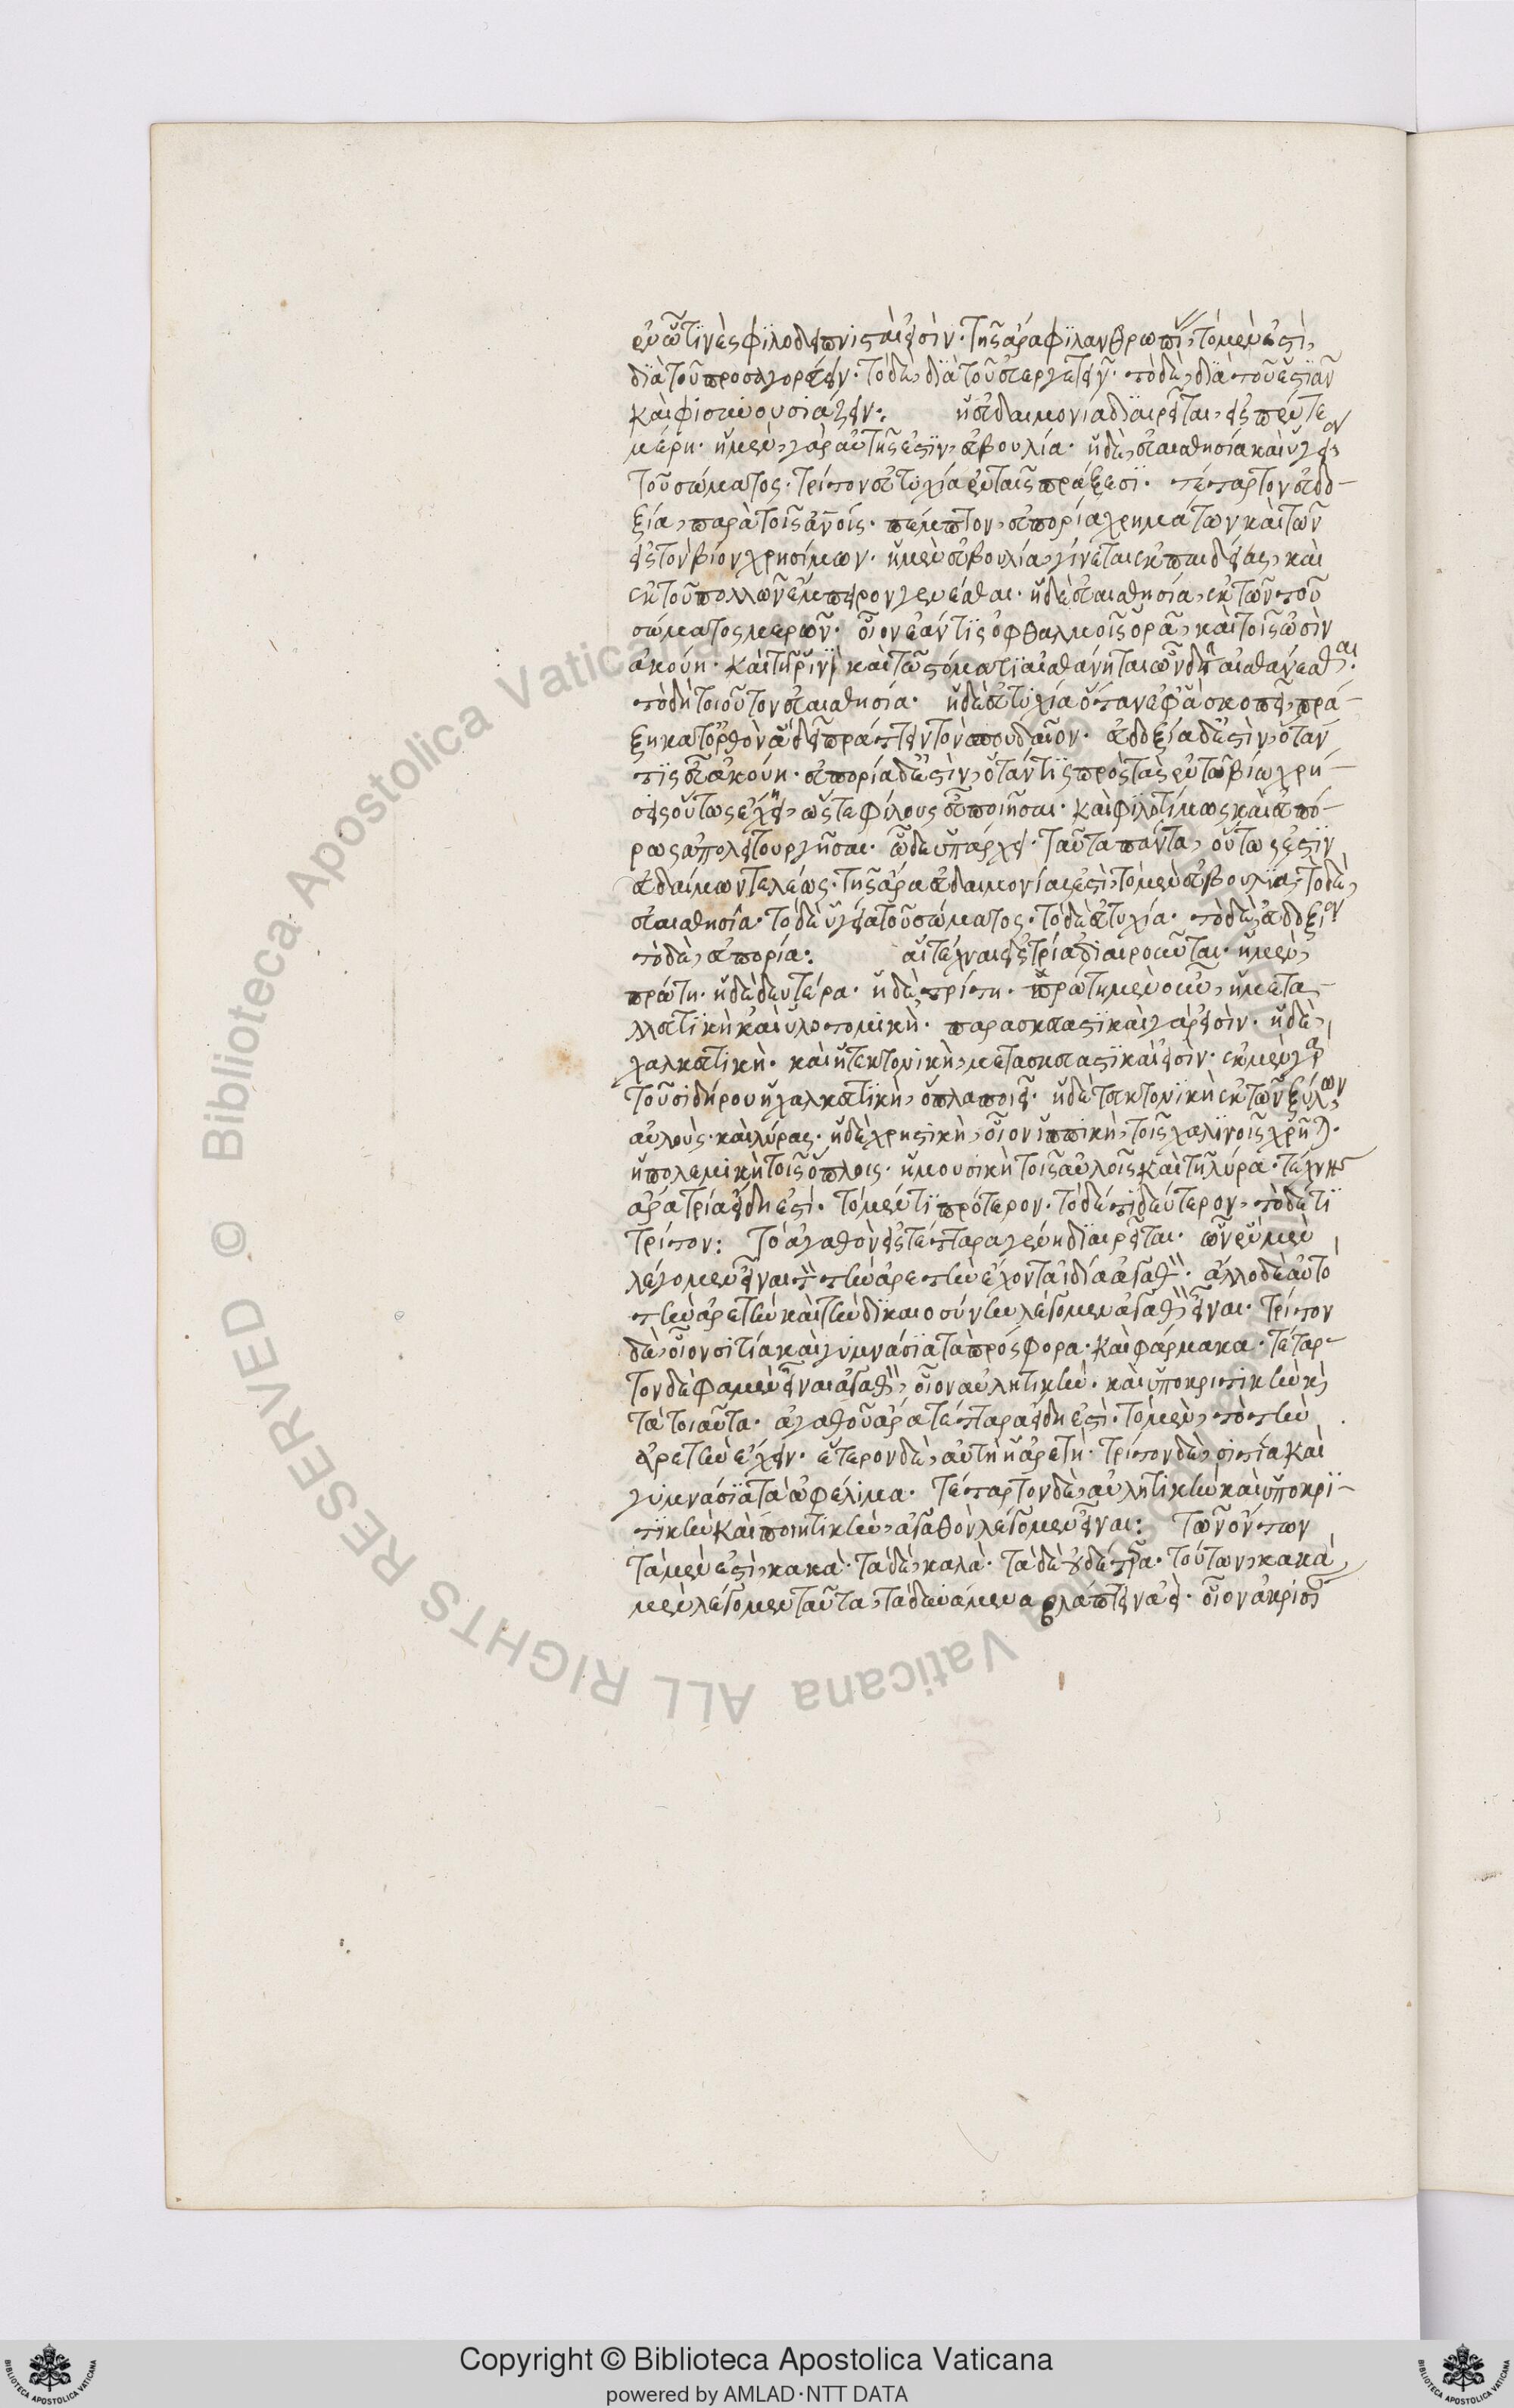 ἐν ὧ τινὲς φιλοδειπνισταὶ εἰσὶν· τῆς ἄρα φιλανθρωπί τὸ μὲν ἐστὶ,
διὰ τοῦ προσαγορεύειν· τὸ δὲ, διὰ τοῦ εὐεργετεῖν· τὸ δὲ, διὰ τοῦ ἑστιᾶν
καὶ φι συνουσιάζειν: ἡ εὐδαιμονία διαιρεῖται, εἰς πέντε
μέρη· ἡ μὲν, γὰρ αὐτῆς ἐστὶν, εὐβουλία· ἡ δὲ, εὐαισθησία καὶ ὑγεί
τοῦ σώματος· τρίτον εὐτυχία ἐν ταῖς πράξεσι· τέταρτον εὐδο-
ξία, παρὰ τοῖς ἀνοις· πέμπτον, εὐπορία χρημάτων καὶ τῶν
εἰς τὸν βίον χρησίμων· ἡ μὲν εὐβουλία, γίνεται ἐκ παιδείας, καὶ
ἐκ τοῦ πολλῶν ἔμπειρον γενέσθαι· ἡ δὲ εὐαισθησία, ἐκ τῶν τοῦ
σώματος μερῶν· οἷον ἐάν τις ὀφθαλμοῖς ὁρᾶ, καὶ τοῖς ὠσὶν
ἀκούη· καὶ τῆ ρινὶ καὶ τῶ στόματι αἰσθάνηται ὧν δεῖ αἰσθάνεσθαι·
τὸ δὴ τοιοῦτον εὐαισθησία· ἡ δὲ εὐτυχία ὅταν ἐφ' ἃ σκοπεῖ, πρά-
ξη κατορθὸν ἃ δεῖ πράττειν τὸν σπουδαῖον· εὐδοξία δ' ἐστὶν, ὅταν
τις εὖ ἀκούη· εὐπορία δ' ἐστὶν, ὅταν τις πρὸς τὰς ἐν τῶ βίω χρή-
σεις οὕτως ἔχη, ὥστε φίλους εὖ ποιῆσαι· καὶ φιλοτίμως καὶ εὐπό-
ρως ἀπολειτουργῆσαι· ὧ δὲ ὑπάρχει· ταῦτα πάντα, οὗτως ἐστὶν
εὐδαίμων τελέως· τῆς ἄρα εὐδαιμονίας ἐστὶ, τὸ μὲν εὐβουλία, τὸ δὲ,
εὐαισθησία· τὸ δὲ ὑγεία τοῦ σώματος· τὸ δὲ εὐτυχία· τὸ δὲ, εὐδοξι
τὸ δὲ, εὐπορία: αἱ τέχναι εἰς τρία διαιροῦνται· ἡ μὲν,
πρώτη· ἡ δὲ δευτέρα· ἡ δὲ τρίτη· ἡ πρώτη μὲν οὖν, ἡ μετα-
λλευτικὴ καὶ ὑλοτομικὴ· παρασκευαστικαὶ γὰρ εἰσὶν· ἡ δὲ,
χαλκευτικὴ· καὶ ἡ τεκτονικὴ, μετασκευαστικαὶ εἰσὶν· ἐκ μὲν γὰρ
τοῦ σιδήρου ἡ χαλκευτικὴ, ὅπλα ποιεῖ· ἡ δὲ τεκτονικὴ ἐκ τῶν ξύλων
αὐλοὺς· καὶ λύρας· ἡ δὲ χρηστικὴ, οἷον ἱππικὴ, τοῖς χαλινοῖς χρῆται·
ἡ πολεμικὴ τοῖς ὅπλοις· ἡ μουσικὴ τοῖς αὐλοῖς καὶ τῆ λύρα· τέχνης
ἄρα τρία εἴδη ἐστὶ· τὸ μέν τι πρότερον· τὸ δέ τι δεύτερον, τὸ δέ τι
τρίτον: Τὸ ἀγαθὸν εἰς τέτταρα γένη διαιρεῖται· ὧν ἓν μὲν
λέγομεν εἶναι τὸν τὴν ἀρετὴν ἔχοντα ἰδία ἀγαθὸν· ἄλλο δὲ αὐτὸ
τὴν ἀρετὴν καὶ τὴν δικαιοσύνην λέγομεν ἀγαθὸν εἶναι· τρίτον
δὲ, οἷον σιτία καὶ γυμνάσια τὰ πρόσφορα· καὶ φάρμακα· τέταρ-
τον δὲ φαμὲν εἶναι ἀγαθὸν, οἷον αὐλητικὴν· καὶ ὑποκριτικὴν κ
τὰ τοιαῦτα· ἀγαθοῦ ἄρα τέτταρα εἴδη ἐστὶ· τὸ μὲν, τὸ τὴν
ἀρετὴν ἔχειν· ἕτερον δὲ, αὐτὴ ἡ ἀρετὴ· τρίτον δὲ, σιτία καὶ
γυμνάσια τὰ ὠφέλιμα· τέταρτον δὲ, αὐλητικὴν καὶ ὑποκρι-
τικὴν καὶ ποιητικὴν, ἀγαθὸν λέγομεν εἶναι: Τῶν ὄντων
τὰ μὲν ἐστὶ, κακὰ· τὰ δὲ, καλὰ· τὰ δὲ οὐδέτερα· τούτων, κακὰ
μὲν λέγομεν ταῦτα, τὰ δυνάμενα βλάπτειν ἀεὶ· οἷον ἀκρισί